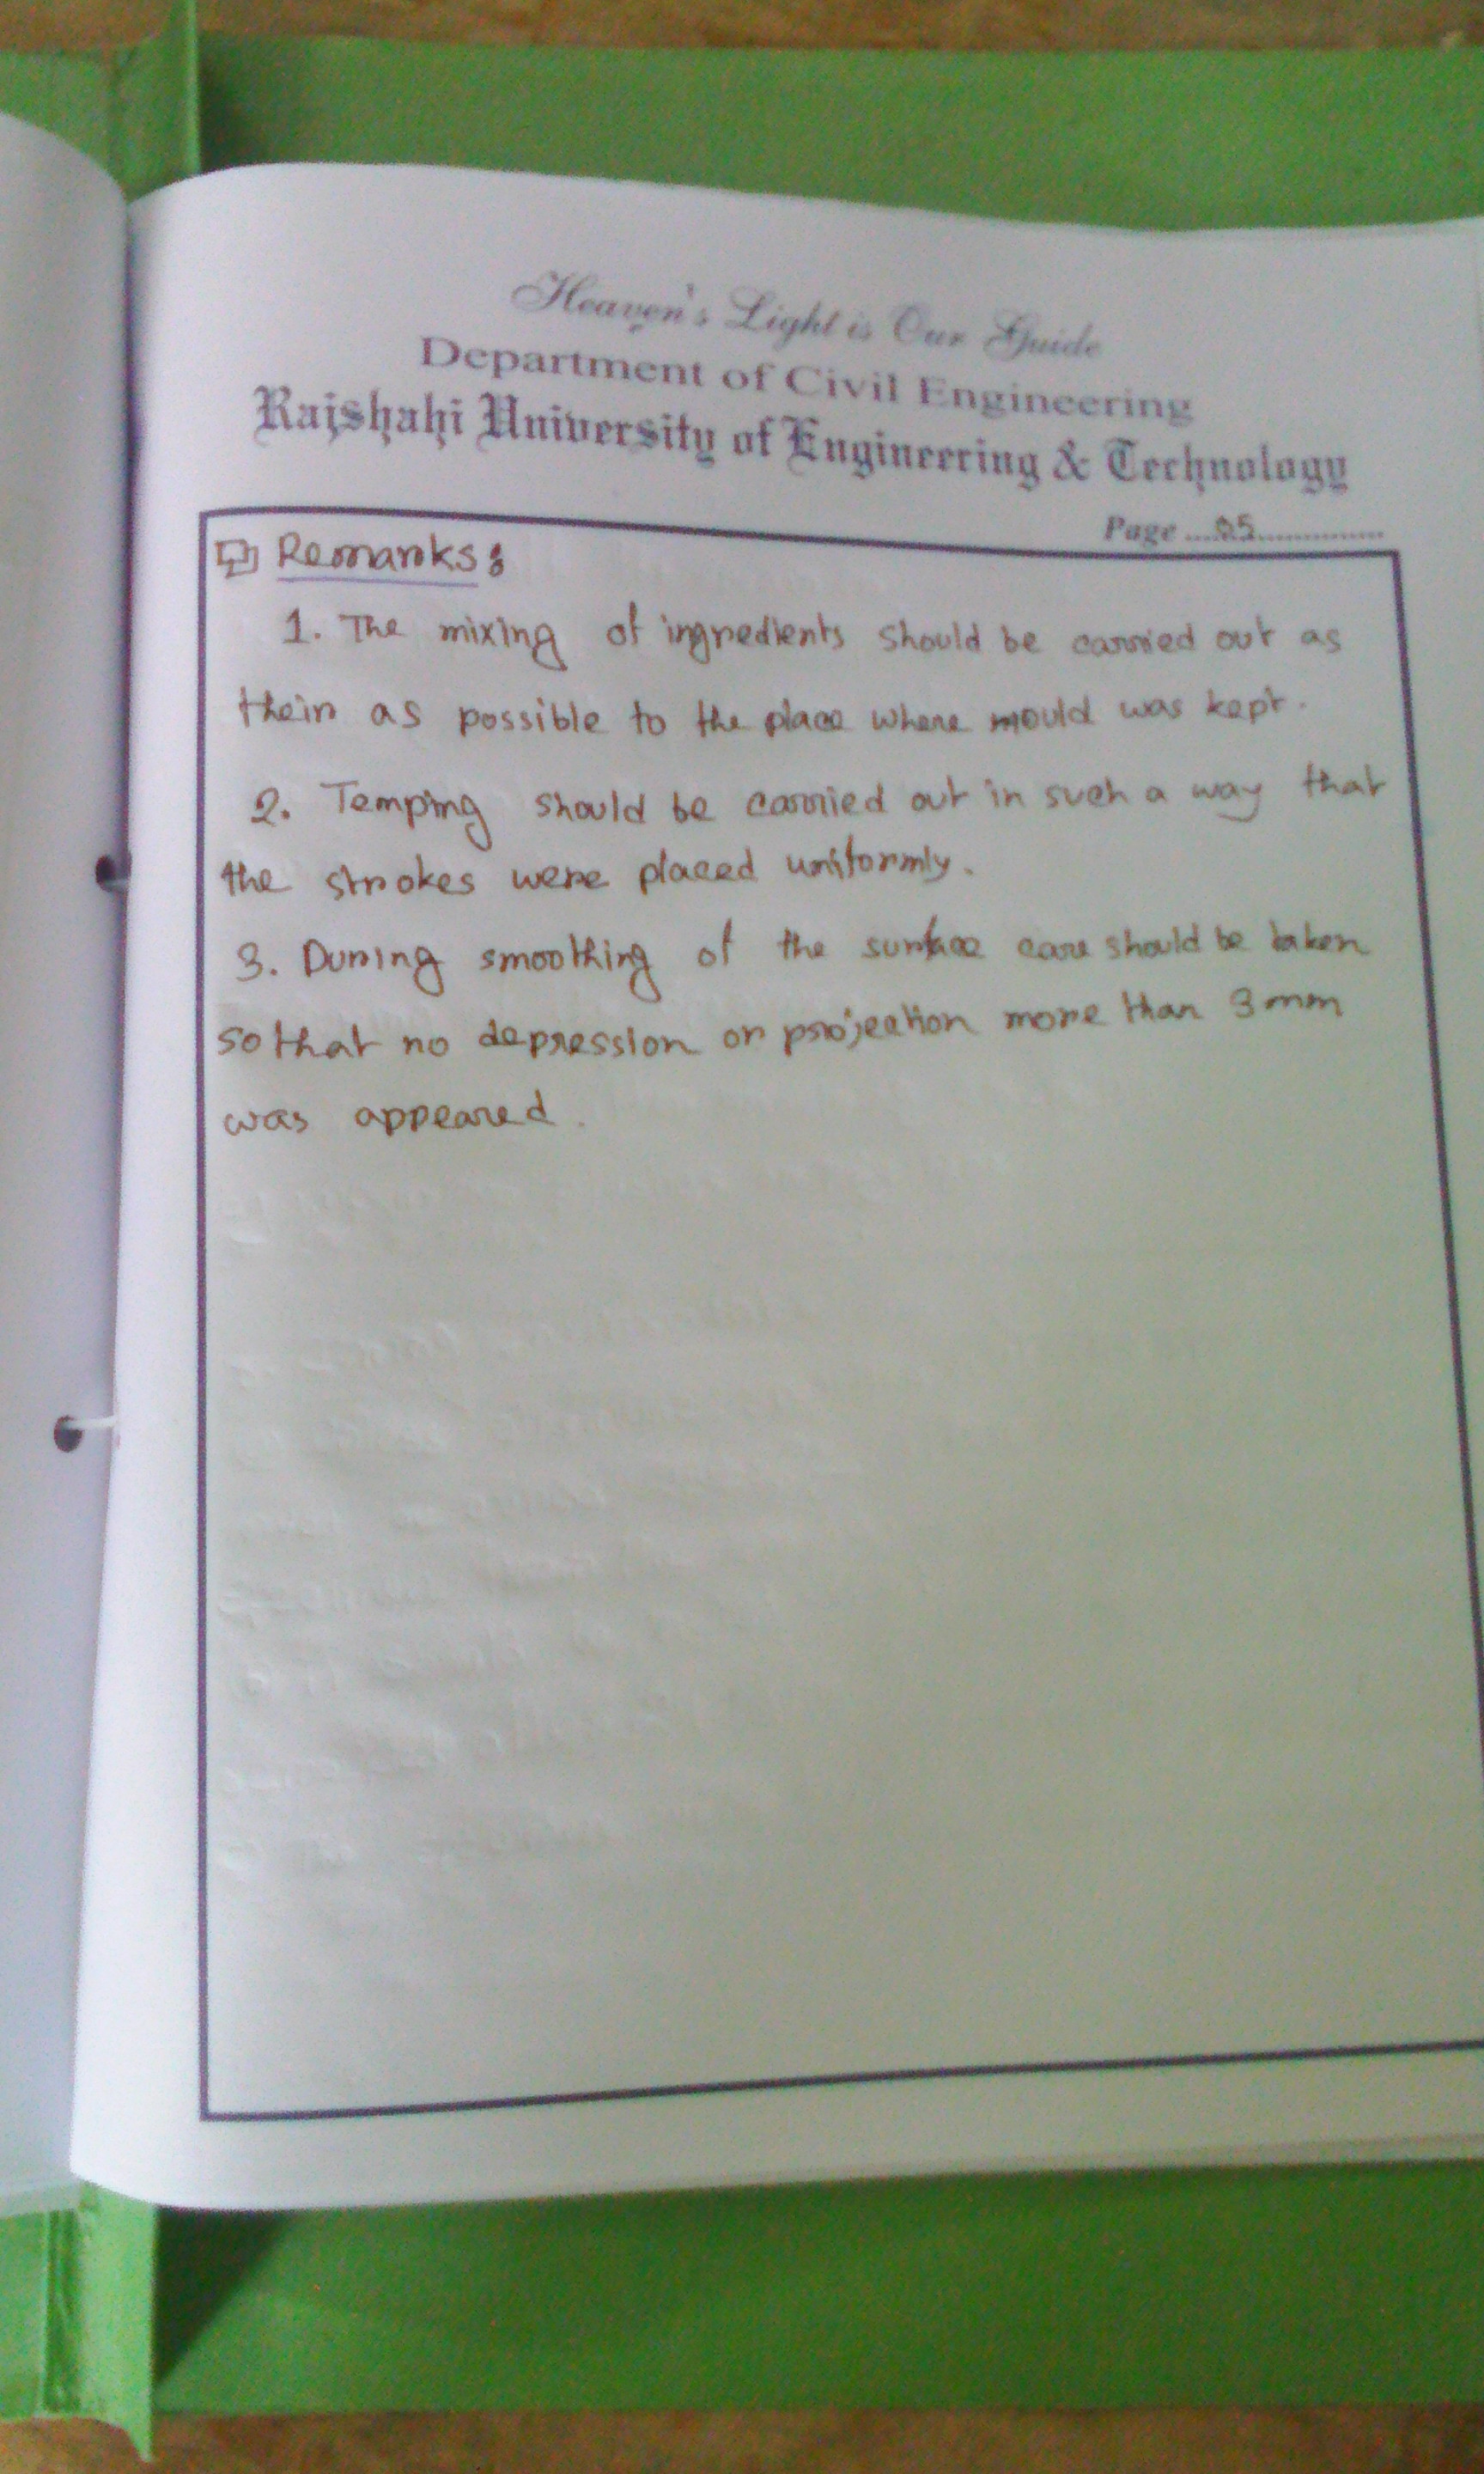 Heaven's Light is Our Guide
Department of Civil Engineering
Rajshahi University of Engineering & Technology
Page ....05..............
Remarks:
1. The mixing of ingredients should be carried out as
their as possible to the place where mould was kept.
2. Temping should be carried out in such a way that
the strokes were placed uniformly.
3. During smoothing of the surface care should be taken
so that no depression or projection more than 3 mm
was appeared.